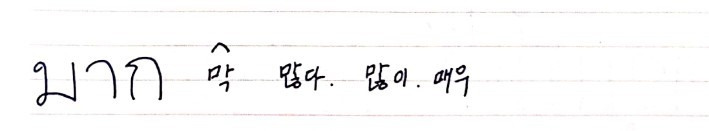 มาก 막 많다. 많이. 매우